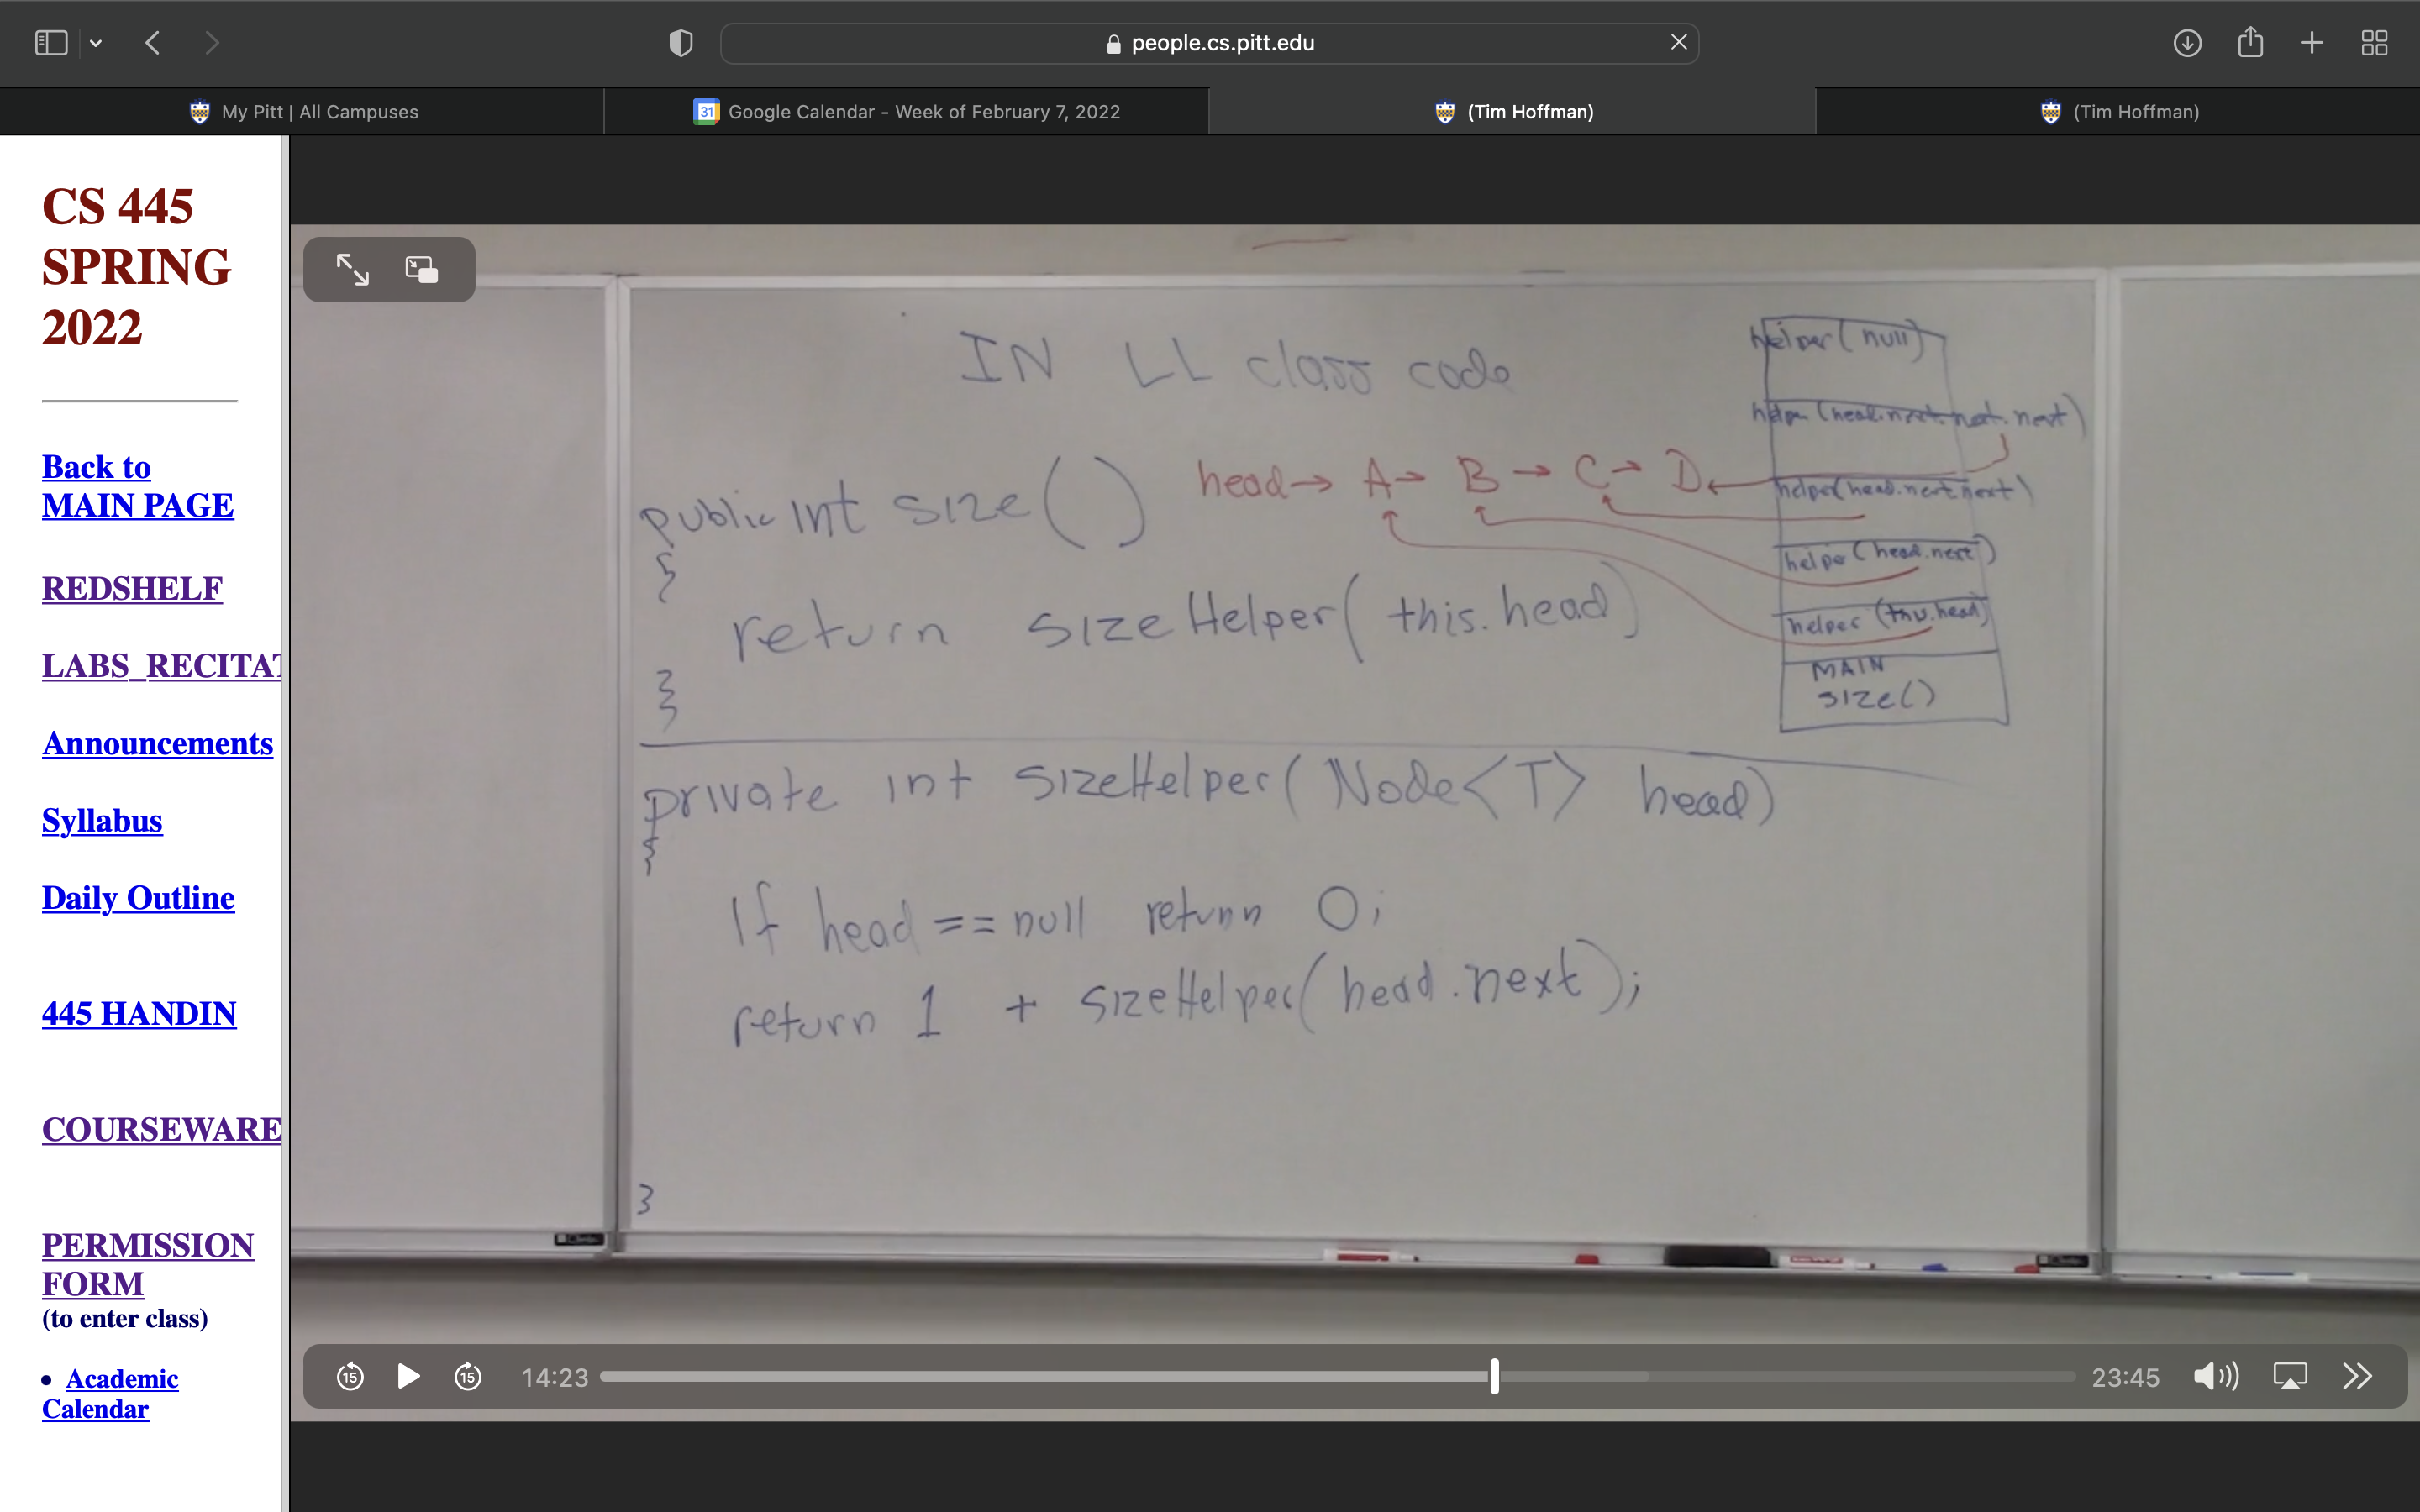 people.cs.pitt.edu
My Pitt | All Campuses
31
Google Calendar - Week of February 7, 2022
(Tim Hoffman)
(Tim Hoffman)
CS 445
SPRING
2022
Back to
MAIN PAGE
REDSHELF
LABS_RECITAT
Announcements
Syllabus
Daily Outline
445 HANDIN
COURSEWARE
PERMISSION
FORM
(to enter class)
• Academic
Calendar
IN LL class code
public int size()
{
return sizeHelper( this.head)
}
head→ A→ B → C→ D
helper( null)
helper (head.next.next.next)
helper(head.next.next)
helper (head.next)
helper (this.head)
MAIN
size()
private int sizeHelper( Node<T> head)
{
If head == null return 0;
return 1 + sizeHelper( head.next);
}
15
15
14:23
23:45